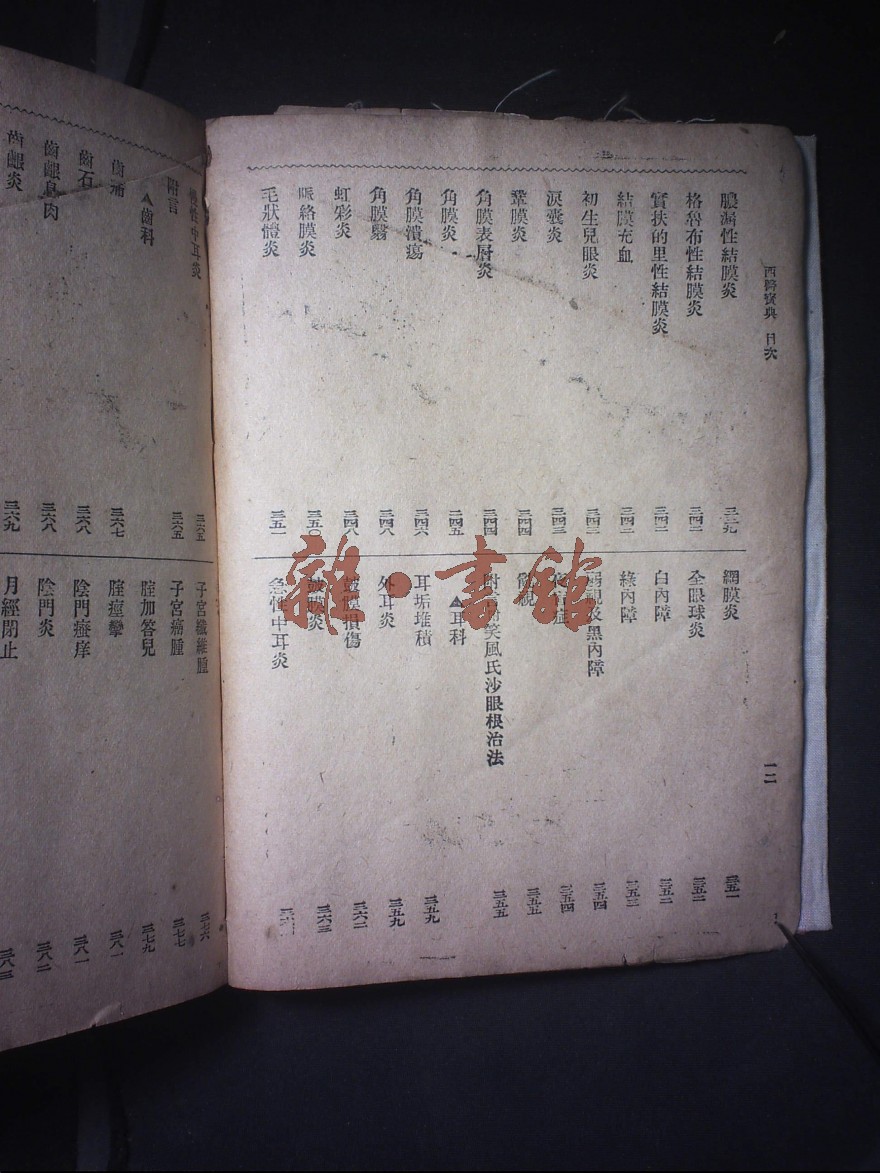 西醫寶典 目次
一二
膿漏性結膜炎 三三九
格魯布性結膜炎 三四二
實扶的里性結膜炎 三四二
結膜充血 三四三
初生兒眼炎 三四三
淚囊炎 三四三
鞏膜炎 三四四
角膜表層炎 三四四
角膜炎 三四五
角膜潰瘍 三四六
角膜翳 三四八
虹彩炎 三四八
脈絡膜炎 三五〇
毛狀體炎 三五一
網膜炎 三五一
全眼球炎 三五二
白內障 三五二
綠內障 三五三
弱視及黑內障 三五四
三五四
三五五
笑風氏沙眼根治法 三五五
▲耳科
耳垢堆積 三五九
外耳炎 三五九
鼓膜損傷 三六二
鼓膜炎 三六三
急性中耳炎
慢性中耳炎 三六五
附言 三六五
▲齒科
齒痛 三六七
齒石 三六八
齒齦息肉 三六八
齒齦炎 三六九
子宮纖維腫 三七六
子宮癌腫 三七七
膣加答兒 三七九
膣痙攣 三八一
陰門瘙痒 三八一
陰門炎 三八二
月經閉止 三八三
雜·書館